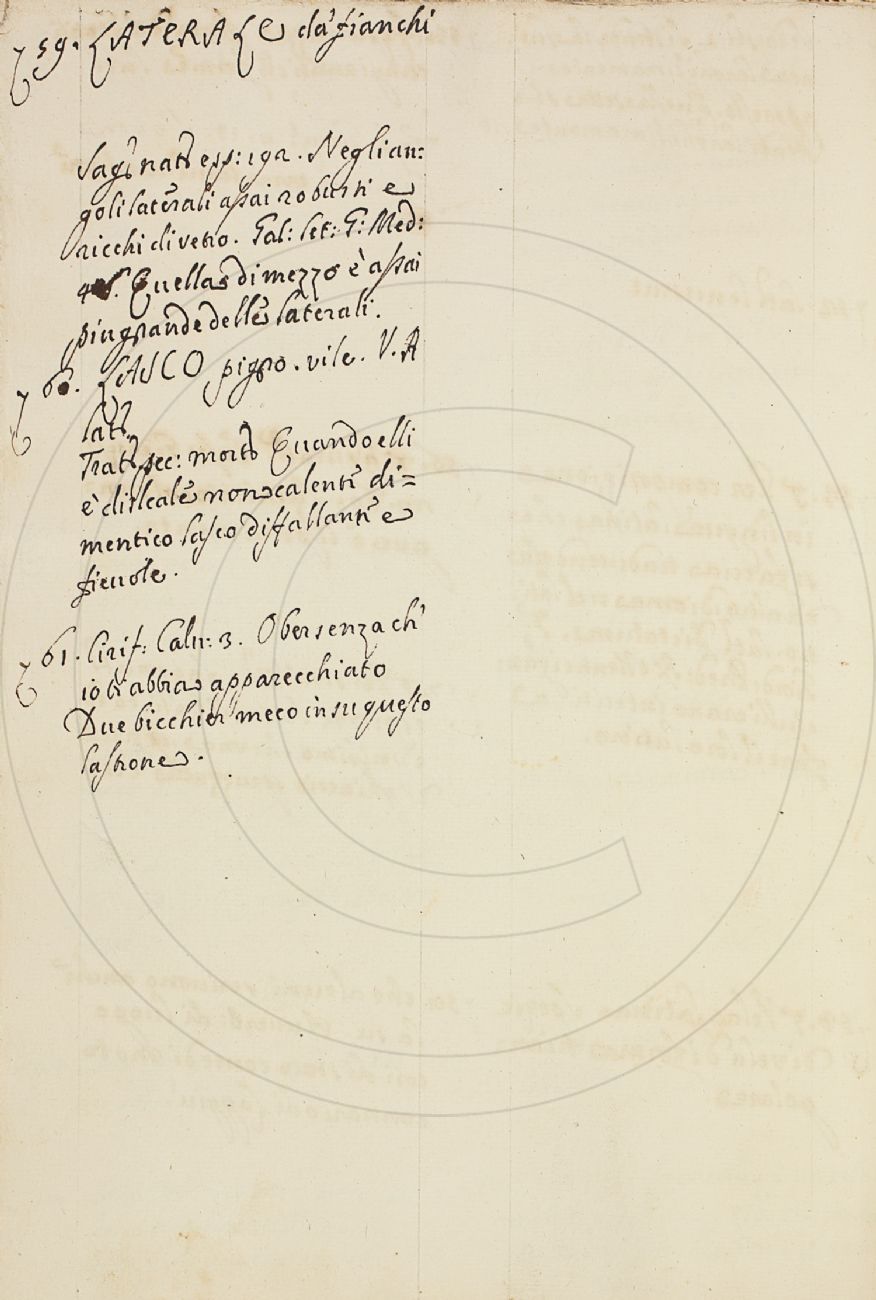 59. LATERALE da' fianchi
Sag: nat: esp: 192. Negli an:
goli laterali assai robusti e
ricchi di vetro. Gal: let: G: Med:
Quella di mezzo è assai
piu grande delle laterali.
60. LASCO pigro. vile. V. A
lat:
Tratt: pec: mort: Quando elli
è disleale non calente di=
mentico lasco diffallante e
fievole.
61. Cirif: Calv: 3. Ober senza ch'
io ti abbia apparecchiato
Due bicchier meco in su questo
lastrone.